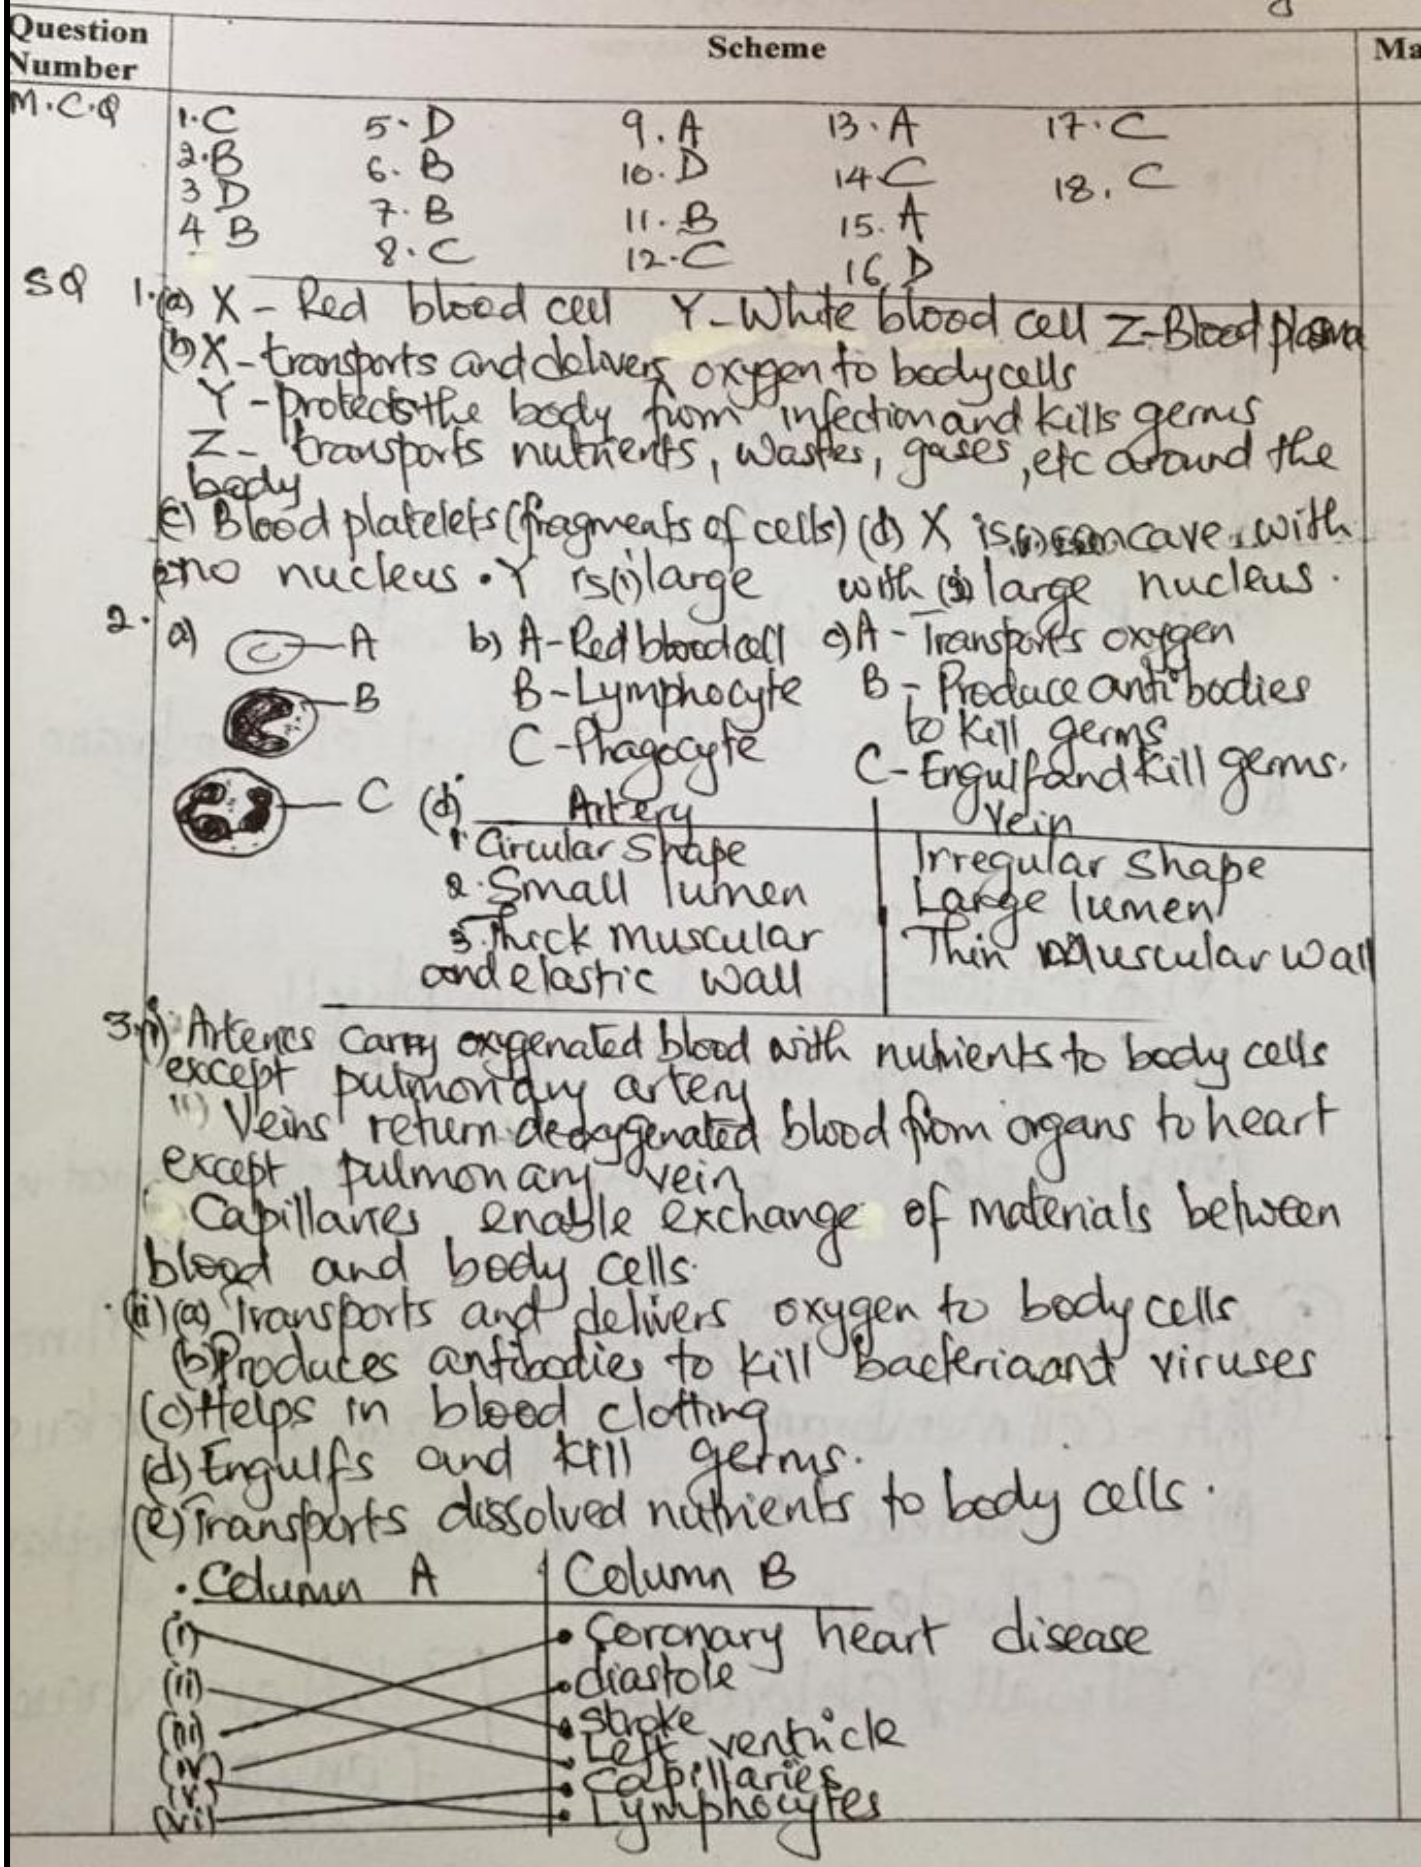 Question Number
Scheme
Ma
M.C.Q
1.C 5. D 9. A 13. A 17. C
2.B 6. B 10. D 14 C 18. C
3 D 7. B 11. B 15. A
4 B 8. C 12. C 16. D
SQ 1.(a) X - Red blood cell Y - White blood cell Z - Blood plasma
(b) X - transports and delivers oxygen to body cells
Y - protects the body from infection and kills germs
Z - transports nutrients, wastes, gases, etc around the
body
(c) Blood platelets (fragments of cells) (d) X is concave with
no nucleus. Y is (1) large with (2) large nucleus.
2. a) A b) A - Red blood cell c) A - Transports oxygen
B B - Lymphocyte B - Produce antibodies
to kill germs
C - Phagocyte C - Engulf and kill germs.
C (d) Artery Vein
1. Circular shape Irregular shape
2. Small lumen Large lumen
3. Thick muscular Thin muscular wall
and elastic wall
3.(i) Arteries carry oxygenated blood with nutrients to body cells
except pulmonary artery
ii) Veins return deoxygenated blood from organs to heart
except pulmonary vein
Capillaries enable exchange of materials between
blood and body cells.
(ii) (a) Transports and delivers oxygen to body cells
(b) Produces antibodies to kill bacteria and viruses
(c) Helps in blood clotting
(d) Engulfs and kill germs.
(e) Transports dissolved nutrients to body cells.
Column A Column B
(i) Coronary heart disease
(ii) diastole
(iii) stroke
(iv) Left ventricle
(v) Capillaries
(vi) Lymphocytes